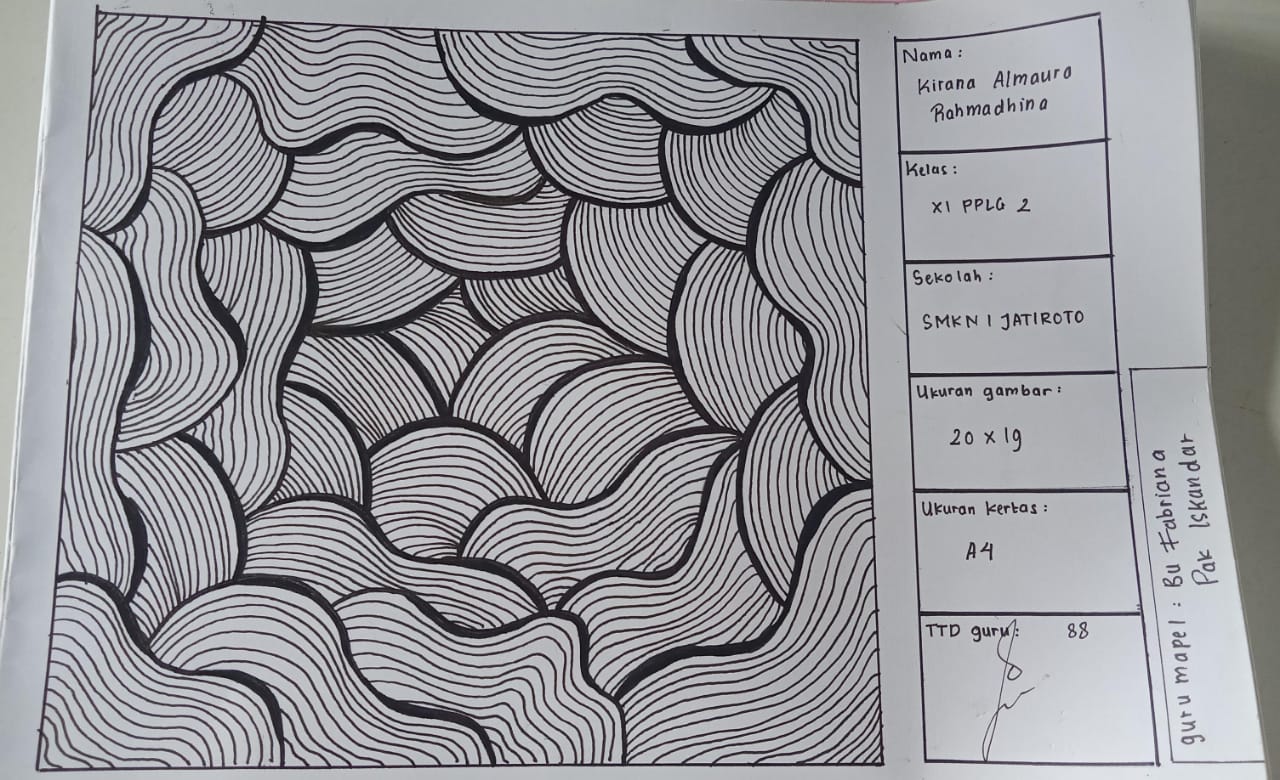 Nama:
Kirana Almaura
Rahmadhina
Kelas:
XI PPLG 2
Sekolah:
SMKN 1 JATIROTO
Ukuran gambar:
20 x 19
Ukuran kertas:
A4
TTD guru: 88
guru mapel: Bu Fabriana
Pak Iskandar